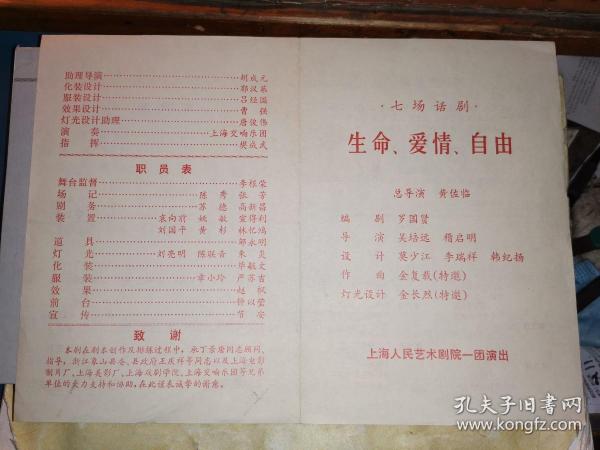 助理导演……胡成元
化装设计……鄂汉英
服装设计……吕经国
效果设计……曹强
灯光设计助理……唐俊伟
演奏……上海交响乐团
指挥……樊成武
职员表
舞台监督……李根荣
场记……陈秀 张芳
剧务……苏德 高新昌
装置……袁向前 姚敏 宣得利
刘国平 黄杉 林忆鸿
道具……邹永明
灯光……刘亮明 陈联音 朱炎
化装……毕毓文
服装……章小玲 严苏吉
效果……赵枫
前台……钟以莹
宣传……节安
致谢
本剧在剧本创作及排练过程中，承丁景唐同志顾问、
指导，浙江象山县委、县政府王庆祥等同志以及上海电影
制片厂、上海美影厂、上海戏剧学院、上海交响乐团等兄弟
单位的大力支持和协助，在此谨表诚挚的谢意。
·七场话剧·
生命、爱情、自由
总导演 黄佐临
编剧 罗国贤
导演 吴培远 稽启明
设计 莫少江 李瑞祥 韩纪扬
作曲 金复载（特邀）
灯光设计 金长然（特邀）
上海人民艺术剧院一团演出
孔夫子旧书网
www.kongfz.com